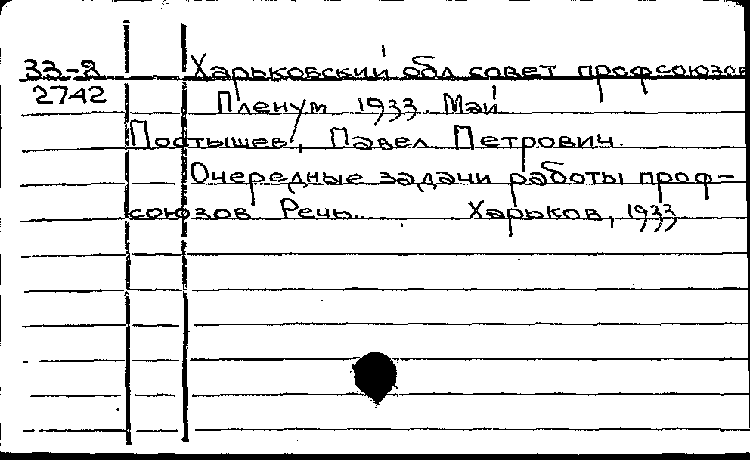 33-8 Харьковский обл совет профсоюзов
2742 Пленум 1933 Май
Постышев, Павел Петрович.
Очередные задачи работы проф-
союзов Речь... Харьков, 1933